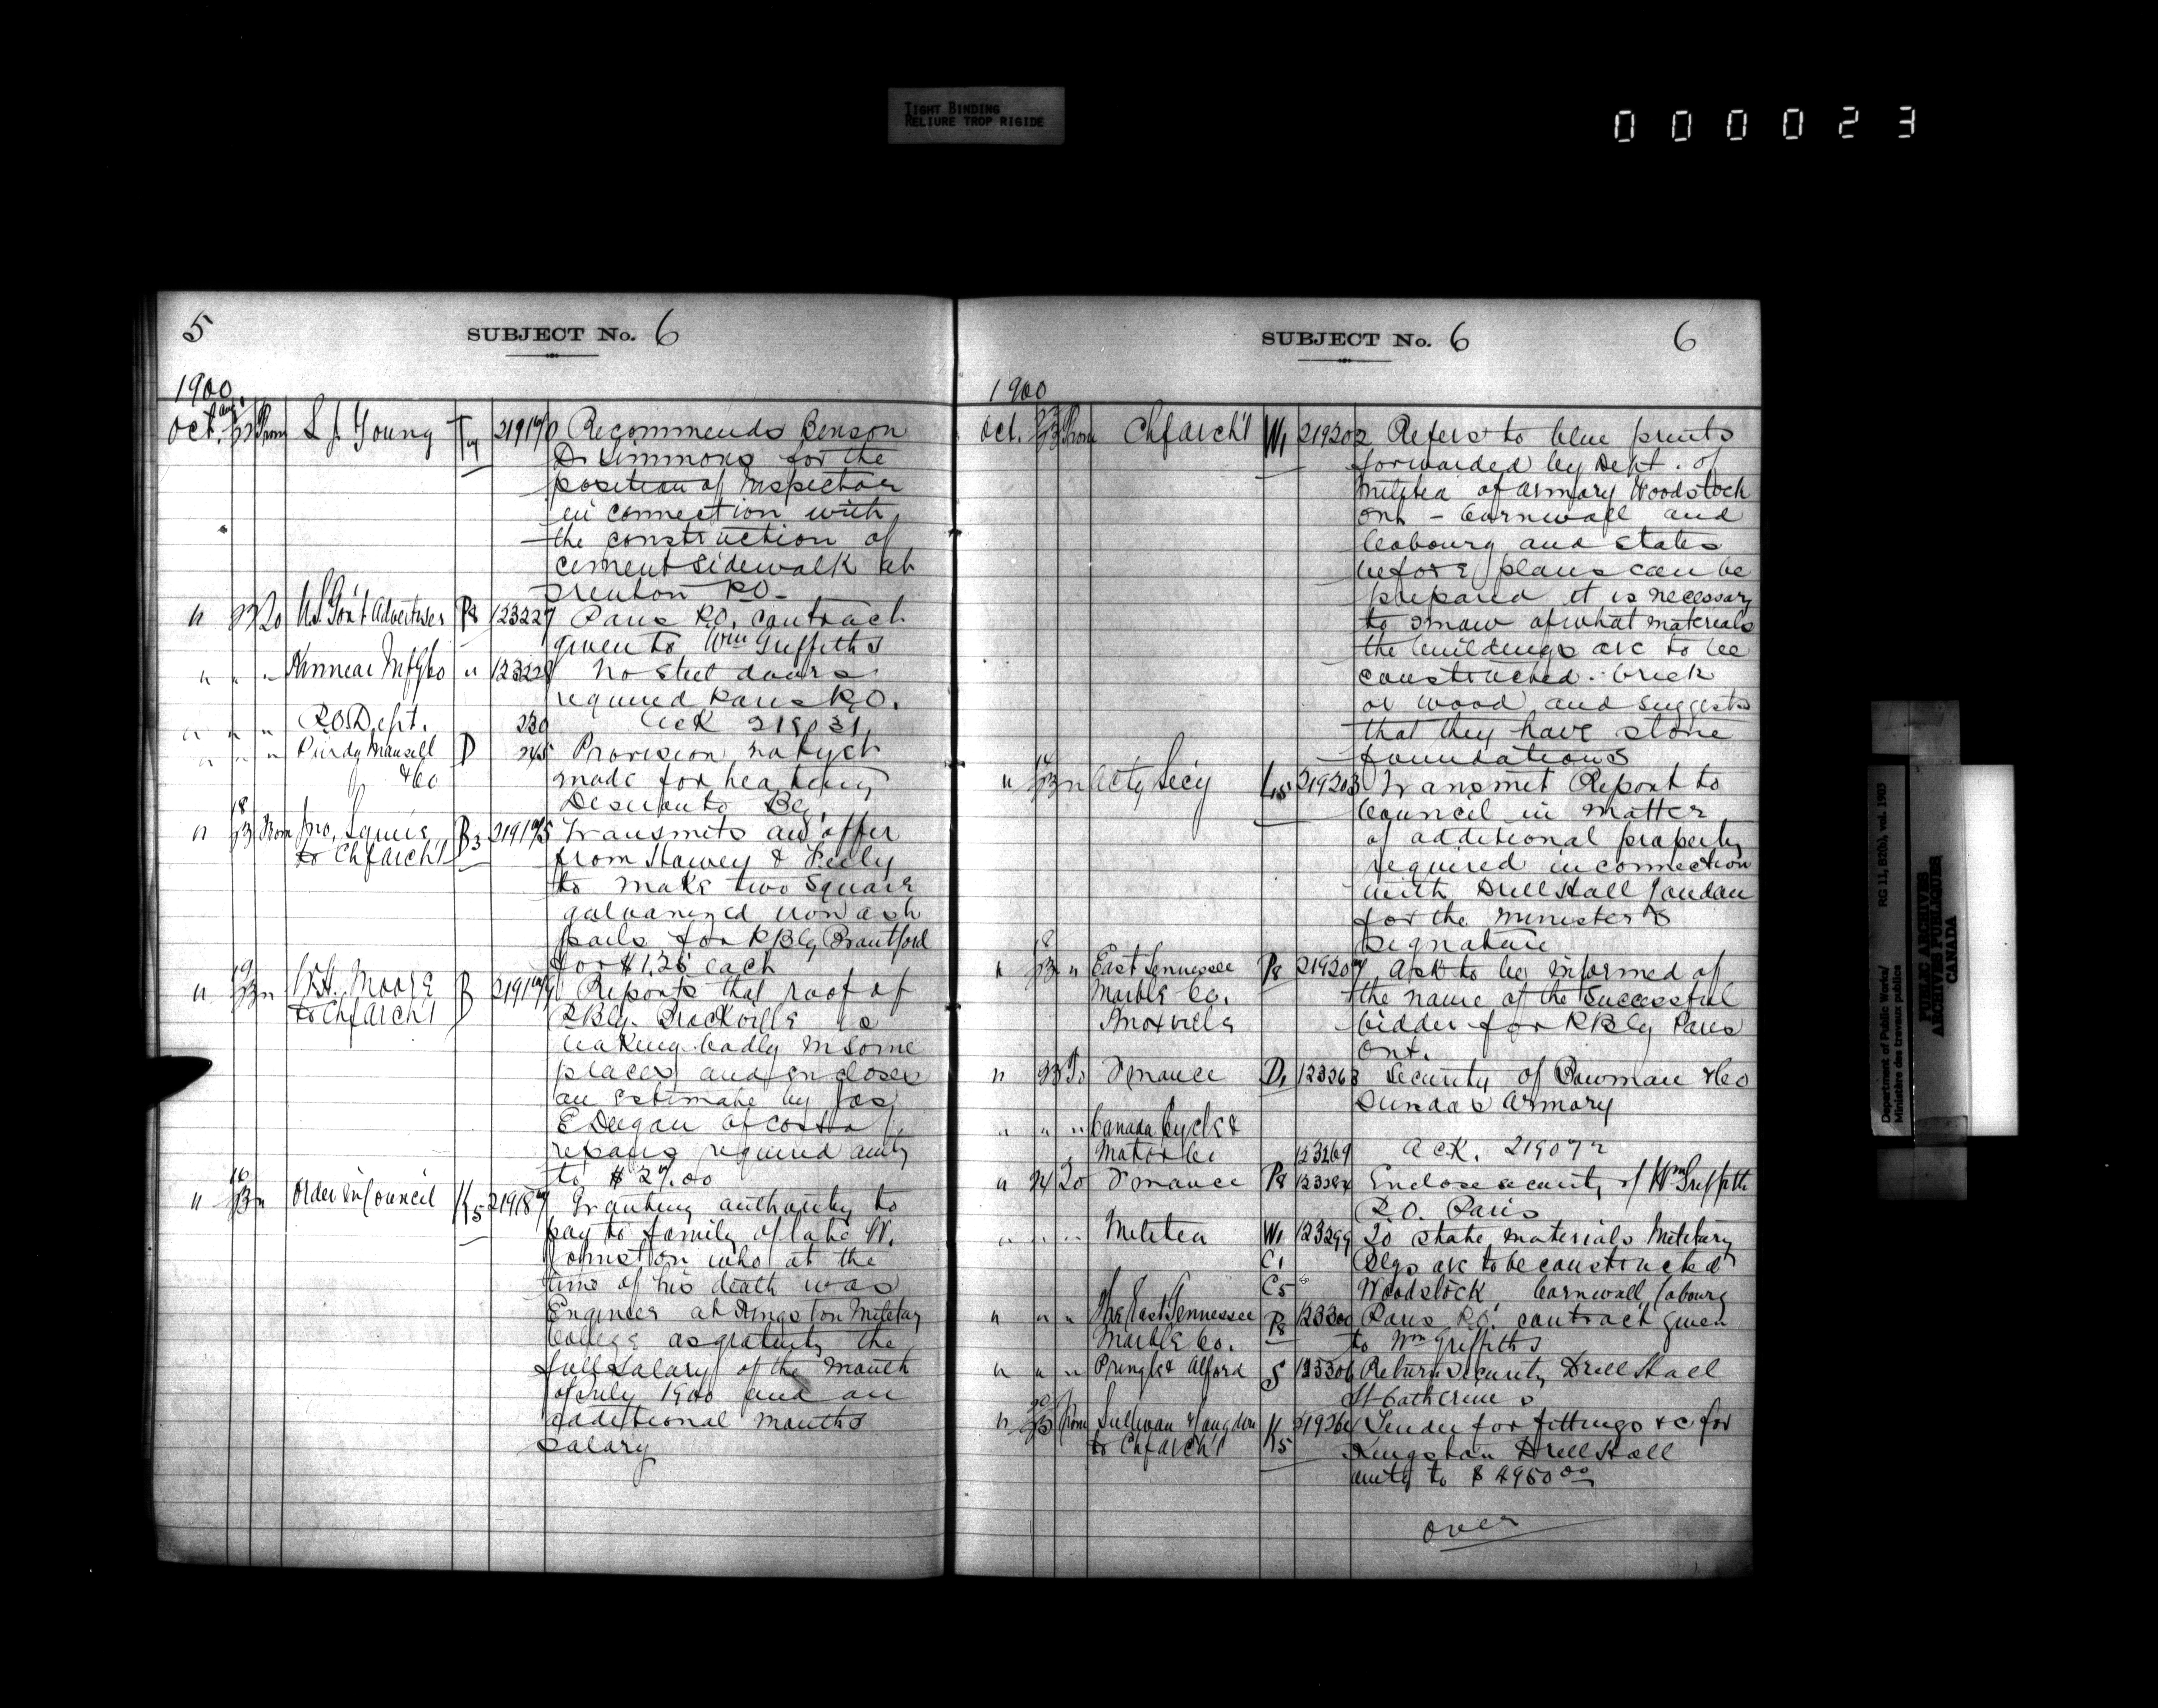 TIGHT BINDING
RELIURE TROP RIGIDE
000023
5
SUBJECT No. 6
1900
Oct. 23 From L J Young T4 219170 Recommends Benson
D. Simmons for the
position of Inspector
in connection with
the construction of
cement sidewalk at
Trenton P.O.
" 23 To U.S. Gov't Advertiser P8 123227 Paris P.O. contract
given to Wm Griffiths
" " " Kinnear Mfg Co " 123228 No steel doors
required Paris P.O.
" " " P.O. Dept. 230 Ack 219031
" " " Purdy Mansell D 245 Provision not yet
& Co made for heating
Deseronto Bg.
18
" 23 From Jno. Squire B3 219175 Transmits an offer
to Chf Arch't from Howey & Feely
to make two square
galvanized iron ash
pails for P Blg Brantford
for $1.25 each
19
" 23 " W.H. Moore B 219179 Reports that roof of
to Chf Arch't P Blg. Brockville is
leaking badly in some
places and encloses
an estimate by Jas
E Deegan of cost of
repairs required amtg
to $27.00
16
" 23 " Order in Council K5 219187 Granting authority to
pay to family of late W.
Johnston who at the
time of his death was
Engineer at Kingston Military
College as gratuity the
full salary of the month
of July 1900 and an
additional months
salary
SUBJECT No. 6
6
1900
Oct. 23 From Chf Arch't W1 219202 Refers to blue prints
forwarded by Dept. of
Militia of armory Woodstock
Ont - Cornwall and
Cobourg and states
before plans can be
prepared it is necessary
to know of what materials
the buildings are to be
constructed. brick
or wood and suggests
that they have stone
foundations
" 23 " Actg Secy L15 219203 Transmit Report to
Council in matter
of additional property
required in connection
with Drill Hall London
for the minister's
signature
18
" 23 " East Tennessee P8 219207 Ask to be informed of
Marble Co. the name of the successful
Knoxville bidder for P Blg Paris
Ont.
" 23 To Finance D1 123263 Security of Bowman & Co
Dundas Armory
" " " Canada Cycle &
Motor Co 123269 Ack. 219072
" 24 To Finance P8 Enclose security of Wm Griffith
P.O. Paris
" " " Militia W1 123299 To state materials Military
C1 Blgs are to be constructed
C5 Woodstock Cornwall Cobourg
" " " The East Tennessee P8 123300 Paris P.O. contract given
Marble Co. to Wm Griffiths
" " " Pringle & Alford S 123306 Return security Drill Hall
St Catherines
20
" 23 From Sullivan & Langdon K5 Tender for fittings &c for
to Chf Arch't Kingston Drill Hall
amtg to $4950.00
over
Department of Public Works/ RG 11, B2(b), vol. 1903
Ministère des travaux publics
PUBLIC ARCHIVES
ARCHIVES PUBLIQUES
CANADA